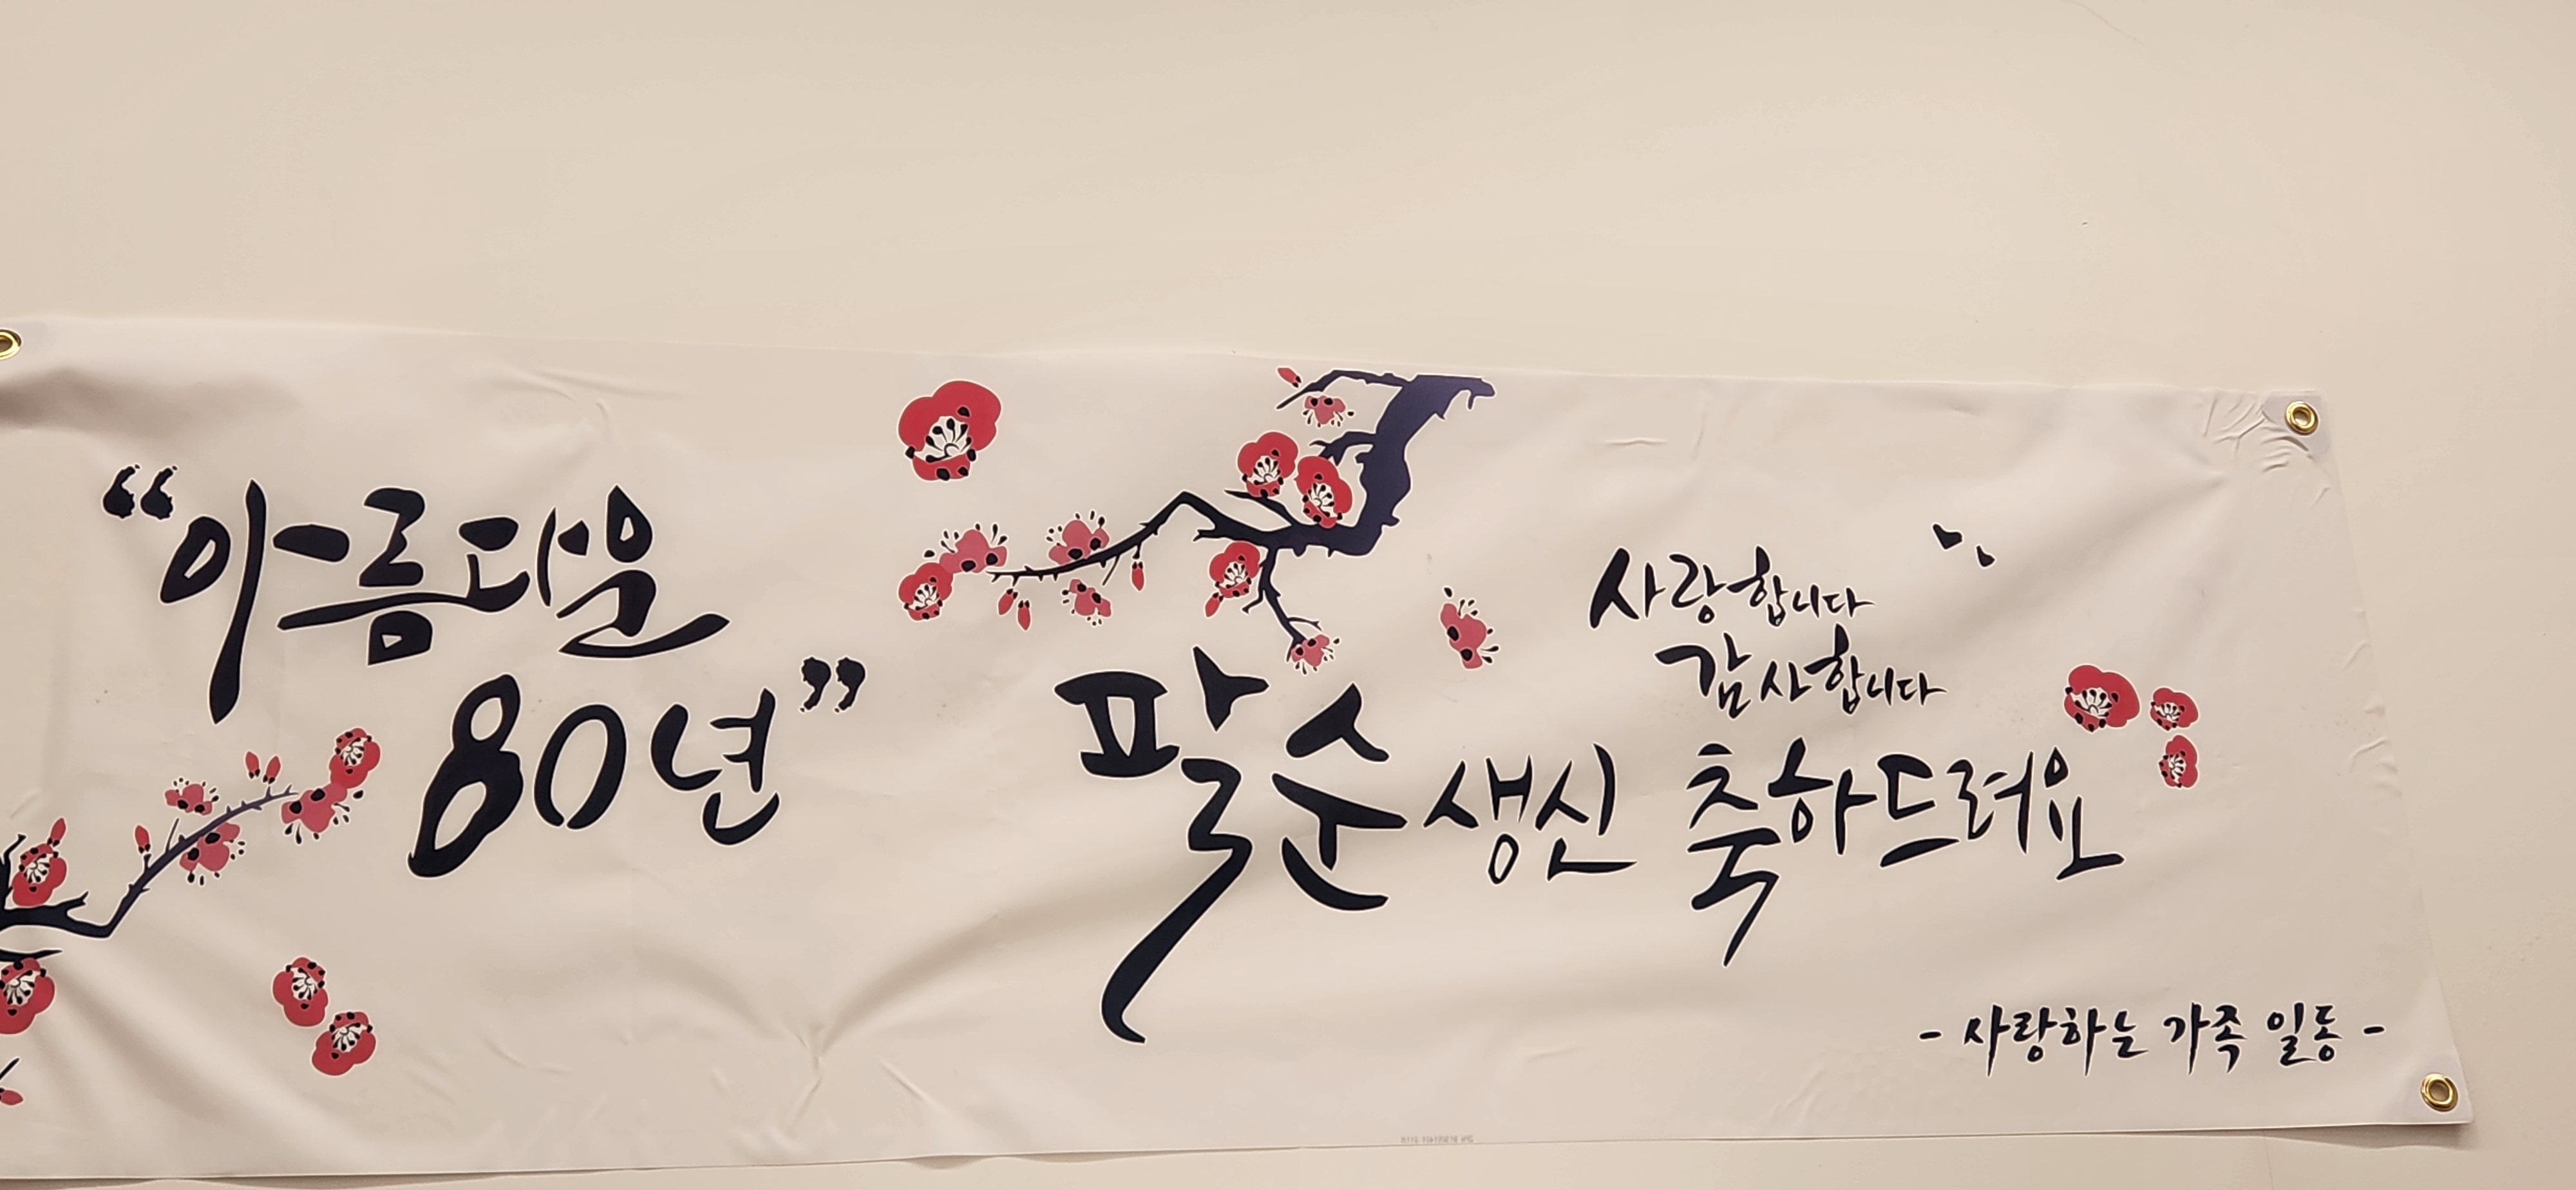 “아름다운
80년”
사랑합니다
감사합니다
팔순생신 축하드려요
- 사랑하는 가족 일동 -